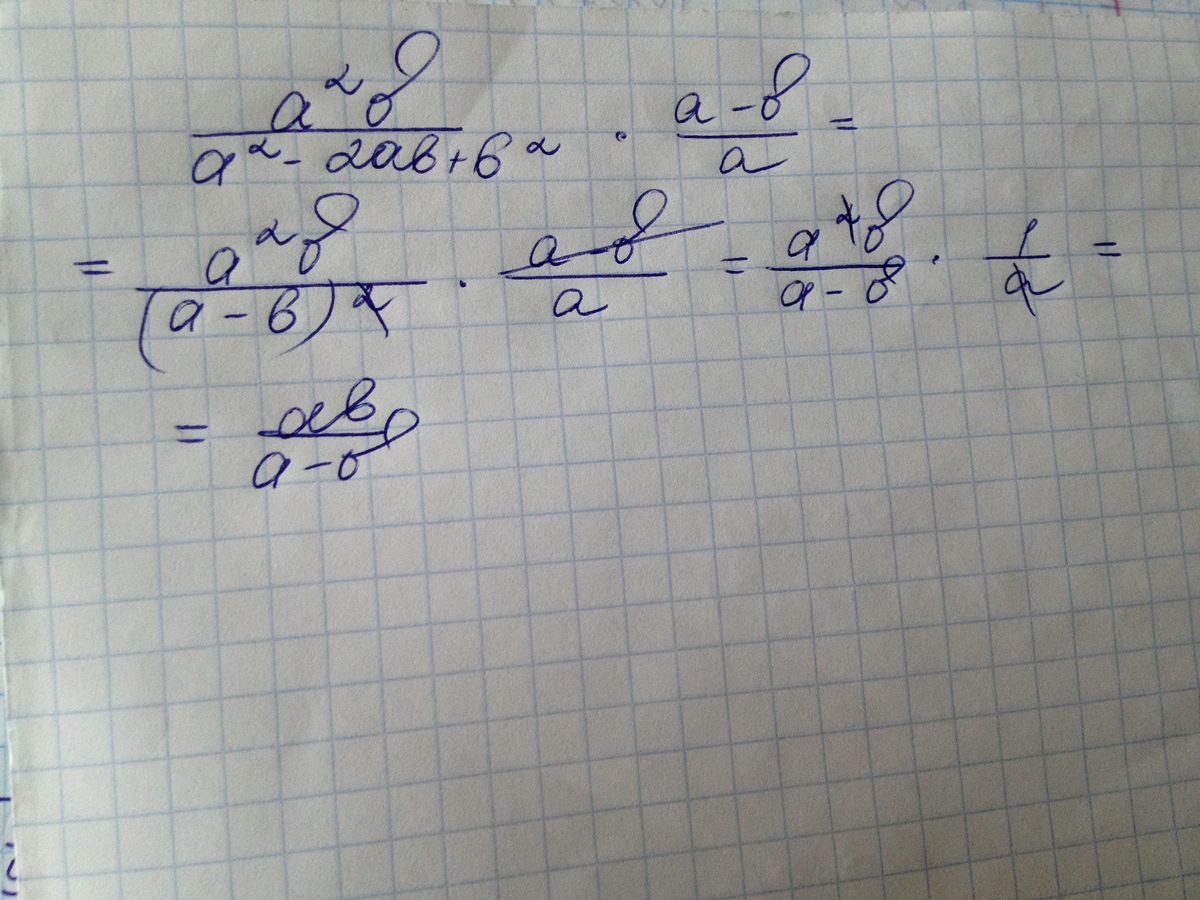 a²b / (a² - 2ab + b²) · (a - b) / a =
= a²b / (a - b)² · (a - b) / a = a²b / (a - b) · 1 / a =
= ab / (a - b)